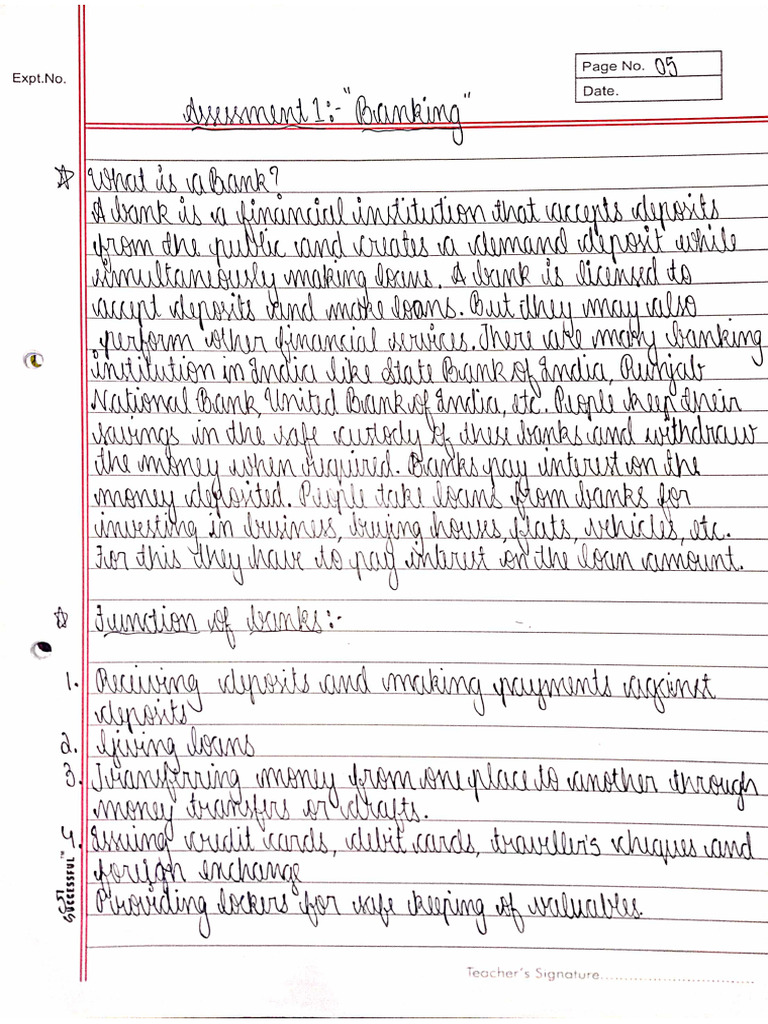 Expt.No.
Page No. 05
Date.
Assessment 1:- "Banking"
☆ What is a Bank?
A bank is a financial institution that accepts deposits
from the public and creates a demand deposit while
simultaneously making loans. A bank is licensed to
accept deposits and make loans. But they may also
perform other financial services. There are many banking
institution in India like State Bank of India, Punjab
National Bank, United Bank of India, etc. People keep their
savings in the safe custody of these banks and withdraw
the money when required. Banks pay interest on the
money deposited. People take loans from banks for
investing in business, buying houses, flats, vehicles, etc.
For this they have to pay interest on the loan amount.
☆ Function of banks:-
1. Receiving deposits and making payments against
deposits
2. Giving loans
3. Transferring money from one place to another through
money transfers or drafts.
4. Issuing credit cards, debit cards, traveller's cheques and
foreign exchange
5. Providing lockers for safe keeping of valuables.
SUCCESSFUL™
Teacher's Signature